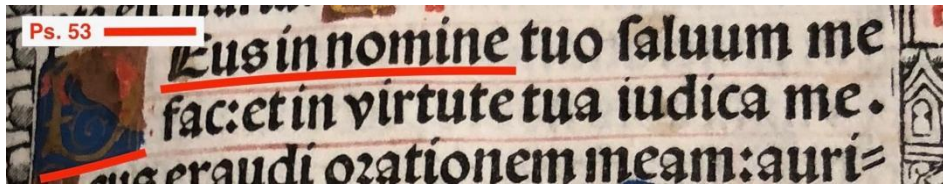 Ps. 53
DEus in nomine tuo saluum me
fac: et in virtute tua iudica me.
eus exaudi orationem meam: auri=